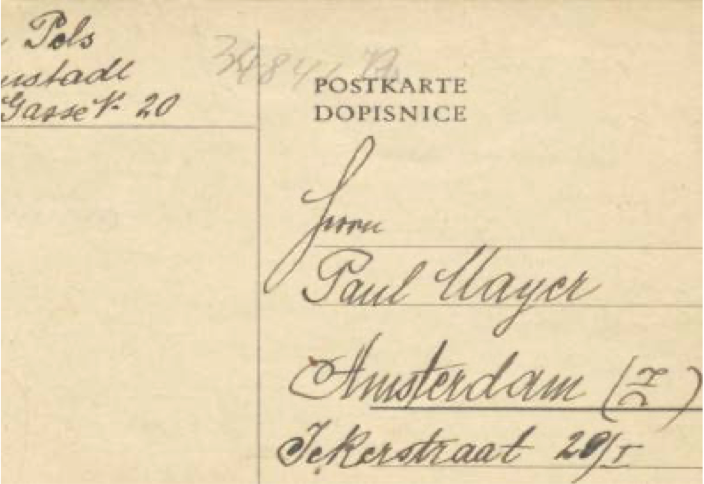 Pols
ustadl
Gasse № 20
POSTKARTE
DOPISNICE
Herrn
Paul Mayer
Amsterdam (Z)
Jekerstraat 29/I